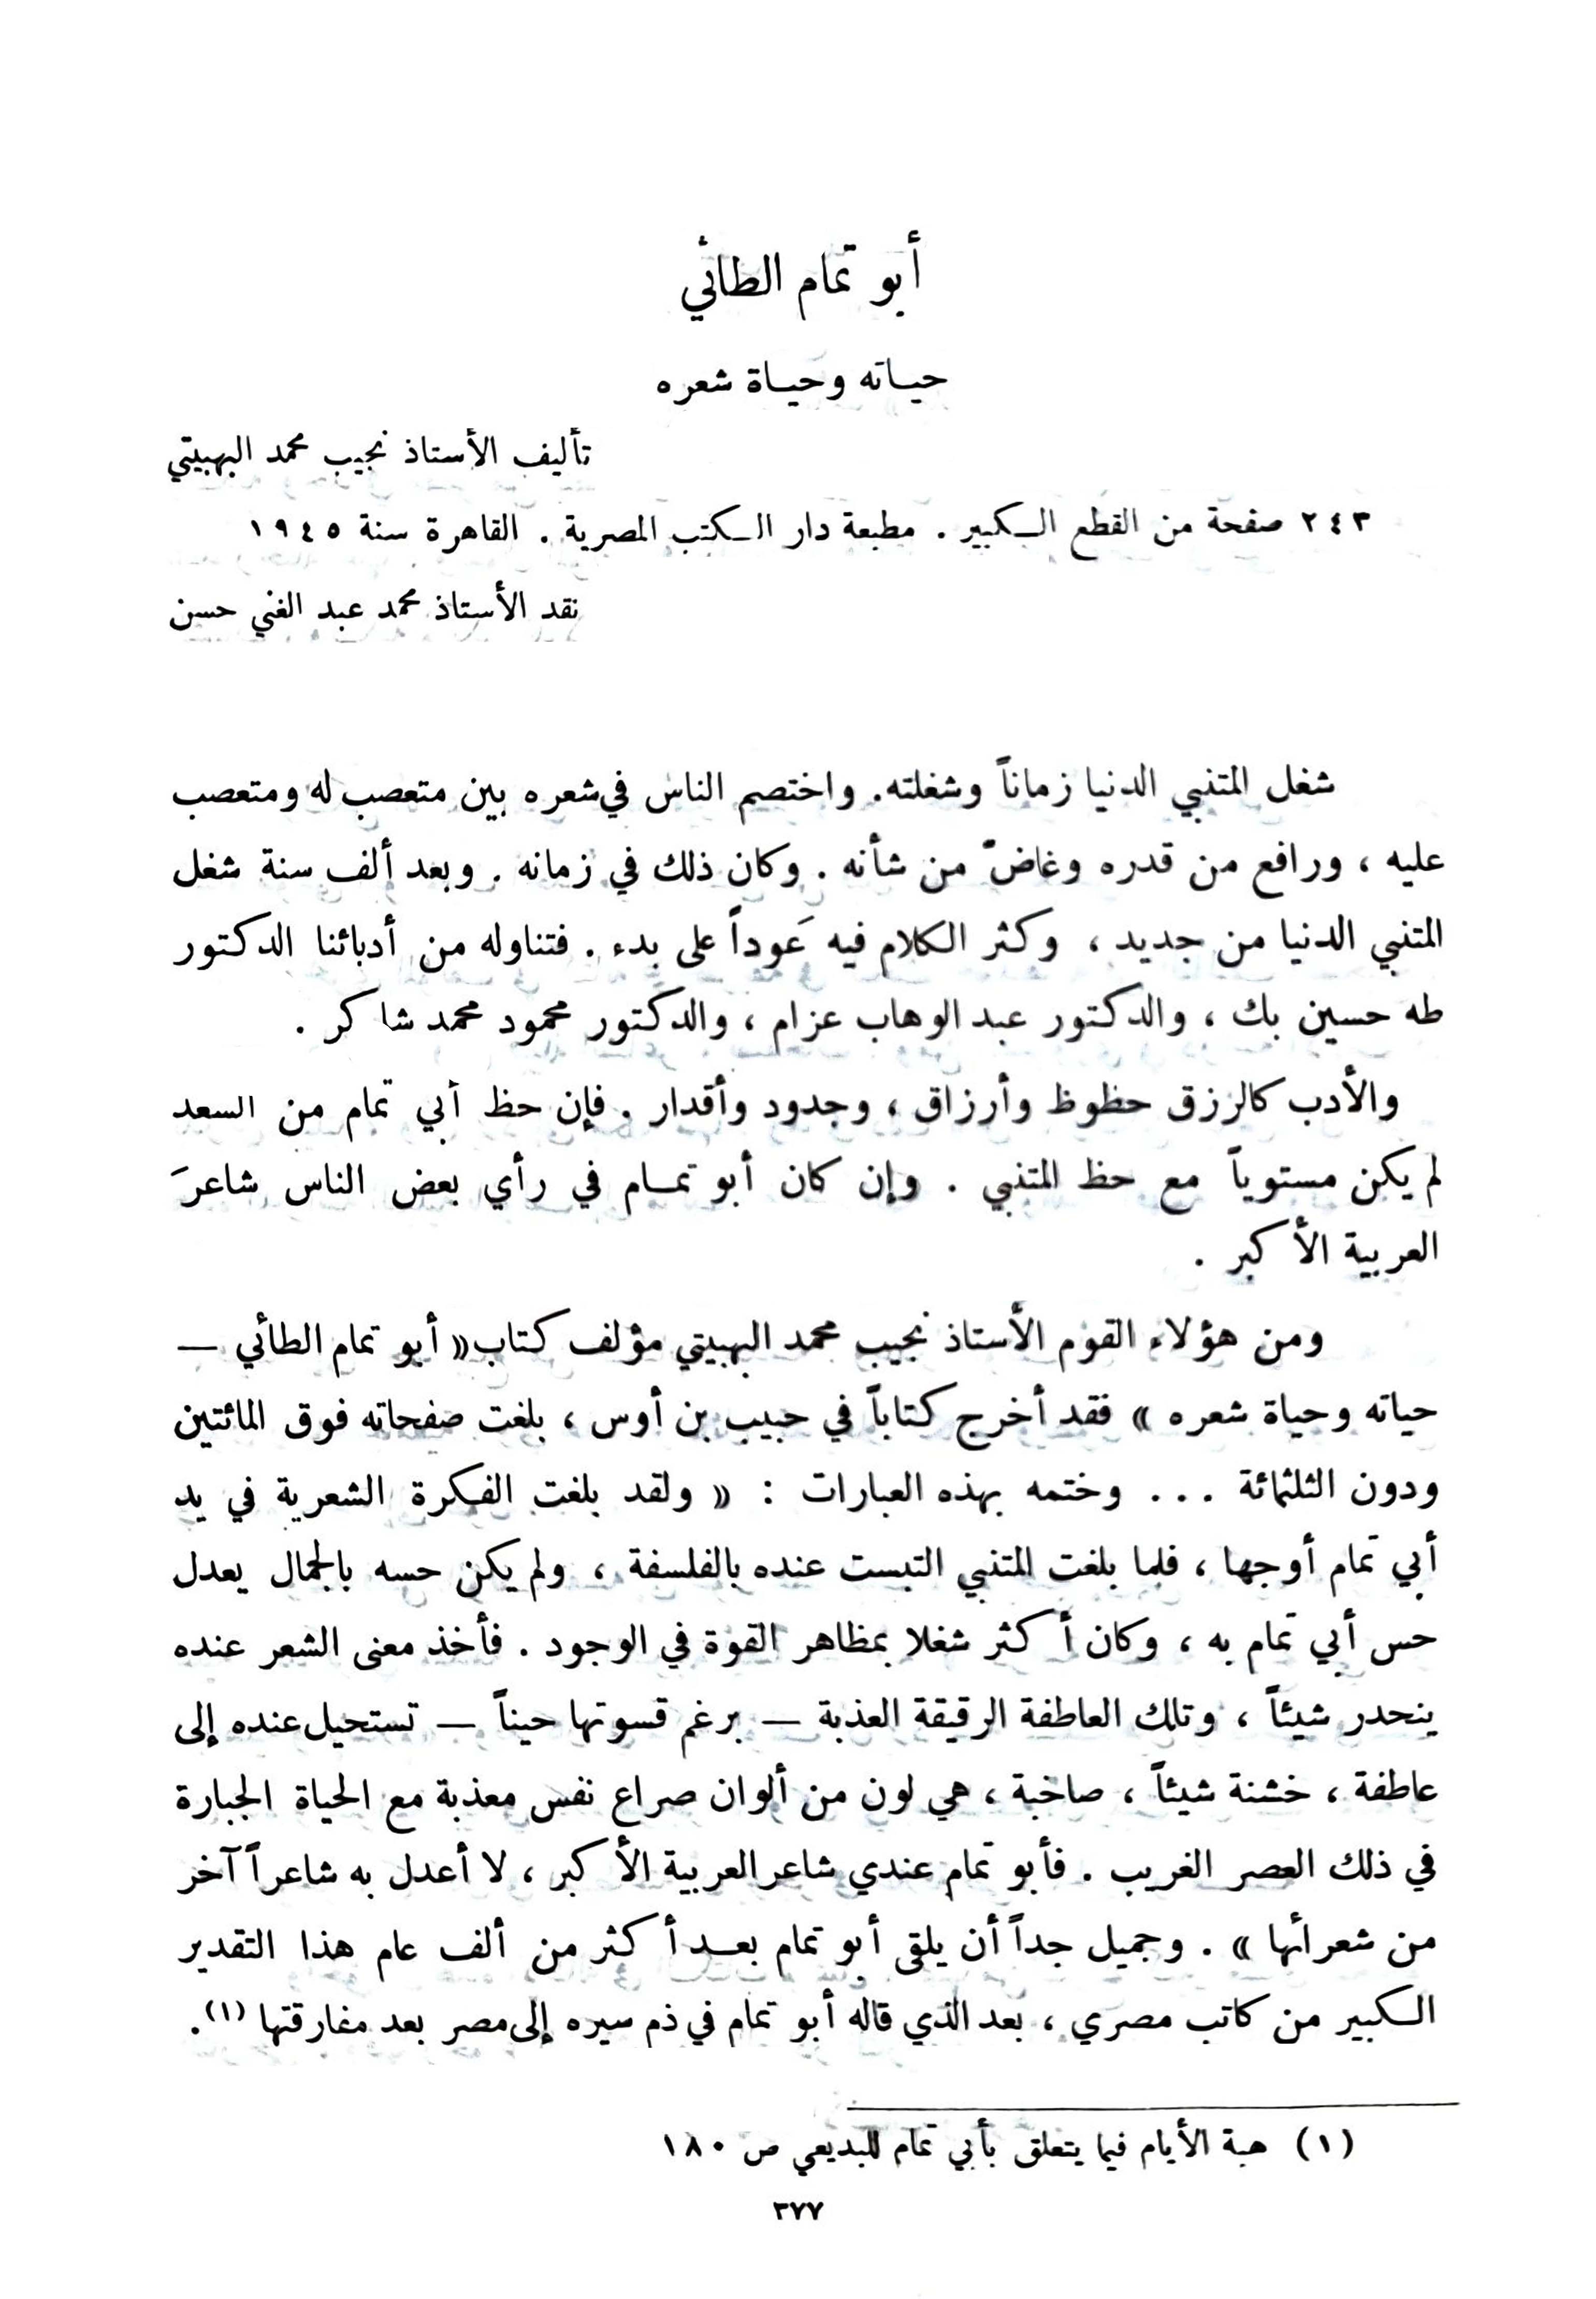 أبو تمام الطائي
حياته وحياة شعره
تأليف الأستاذ نجيب محمد البهبيتي
٢٤٣ صفحة من القطع الكبير . مطبعة دار الكتب المصرية . القاهرة سنة ١٩٤٥
نقد الأستاذ محمد عبد الغني حسن
شغل المتنبي الدنيا زماناً وشغلته. واختصم الناس في شعره بين متعصب له ومتعصب
عليه ، ورافع من قدره وغاضّ من شأنه . وكان ذلك في زمانه . وبعد ألف سنة شغل
المتنبي الدنيا من جديد ، وكثر الكلام فيه عَوداً على بدء . فتناوله من أدبائنا الدكتور
طه حسين بك ، والدكتور عبد الوهاب عزام ، والدكتور محمود محمد شاكر .
والأدب كالرزق حظوظ وأرزاق ، وجدود وأقدار . فإن حظ أبي تمام من السعد
لم يكن مستوياً مع حظ المتنبي . وإن كان أبو تمام في رأي بعض الناس شاعرَ
العربية الأكبر .
ومن هؤلاء القوم الأستاذ نجيب محمد البهبيتي مؤلف كتاب « أبو تمام الطائي —
حياته وحياة شعره » فقد أخرج كتاباً في حبيب بن أوس ، بلغت صفحاته فوق المائتين
ودون الثلثمائة ... وختمه بهذه العبارات : « ولقد بلغت الفكرة الشعرية في يد
أبي تمام أوجها ، فلما بلغت المتنبي التبست عنده بالفلسفة ، ولم يكن حسه بالجمال يعدل
حس أبي تمام به ، وكان أكثر شغلا بمظاهر القوة في الوجود . فأخذ معنى الشعر عنده
ينحدر شيئاً ، وتلك العاطفة الرقيقة العذبة — برغم قسوتها حيناً — تستحيل عنده إلى
عاطفة ، خشنة شيئاً ، صاخبة ، هي لون من ألوان صراع نفس معذبة مع الحياة الجبارة
في ذلك العصر الغريب . فأبو تمام عندي شاعر العربية الأكبر ، لا أعدل به شاعراً آخر
من شعرائها » . وجميل جداً أن يلقى أبو تمام بعد أكثر من ألف عام هذا التقدير
الكبير من كاتب مصري ، بعد الذي قاله أبو تمام في ذم سيره إلى مصر بعد مفارقتها (١).
(١) هبة الأيام فيما يتعلق بأبي تمام للبديعي ص ١٨٠
٣٧٧